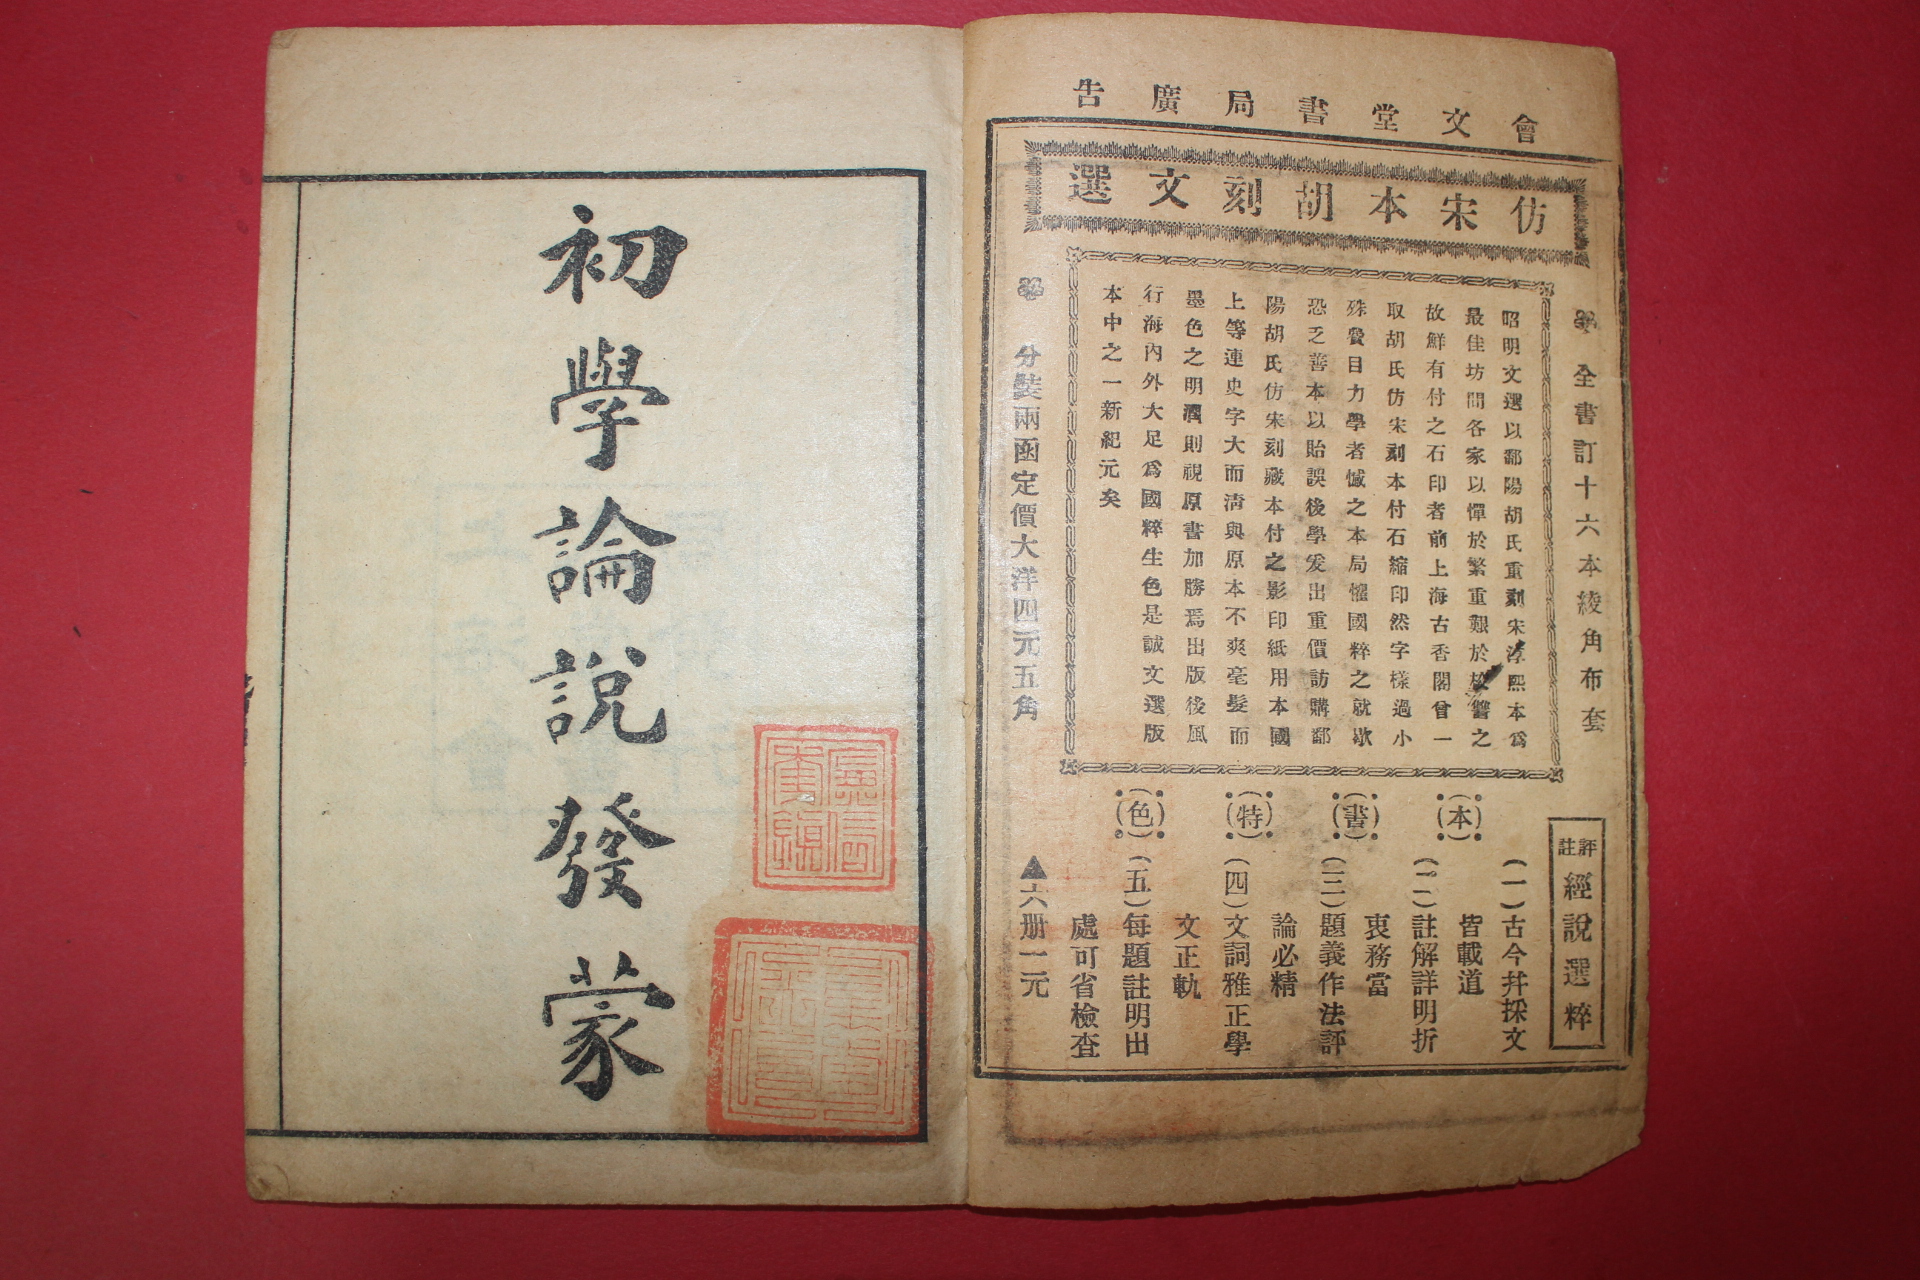 會文堂書局廣告
仿宋本胡刻文選
全書訂十六本綾角布套
昭明文選以鄱陽胡氏重刻宋淳熙本爲
最佳坊間各家以憚於繁重艱於校讐之
故鮮有付之石印者前上海古香閣曾一
取胡氏仿宋刻本付石縮印然字樣過小
殊費目力學者憾之本局懼國粹之就歇
恐乏善本以貽誤後學爰出重價訪購鄱
陽胡氏仿宋刻藏本付之影印紙用本國
上等連史字大而淸與原本不爽毫髮而
墨色之明潤則視原書加勝焉出版後風
行海內外大足爲國粹生色是誠文選版
本中之一新紀元矣
分裝兩函定價大洋四元五角
評註經說選粹
(本)(書)(特)(色)
(一)古今幷採文
皆載道
(二)註解詳明折
衷務當
(三)題義作法評
論必精
(四)文詞雅正學
文正軌
(五)每題註明出
處可省檢查
▲六册一元
初學論說發蒙